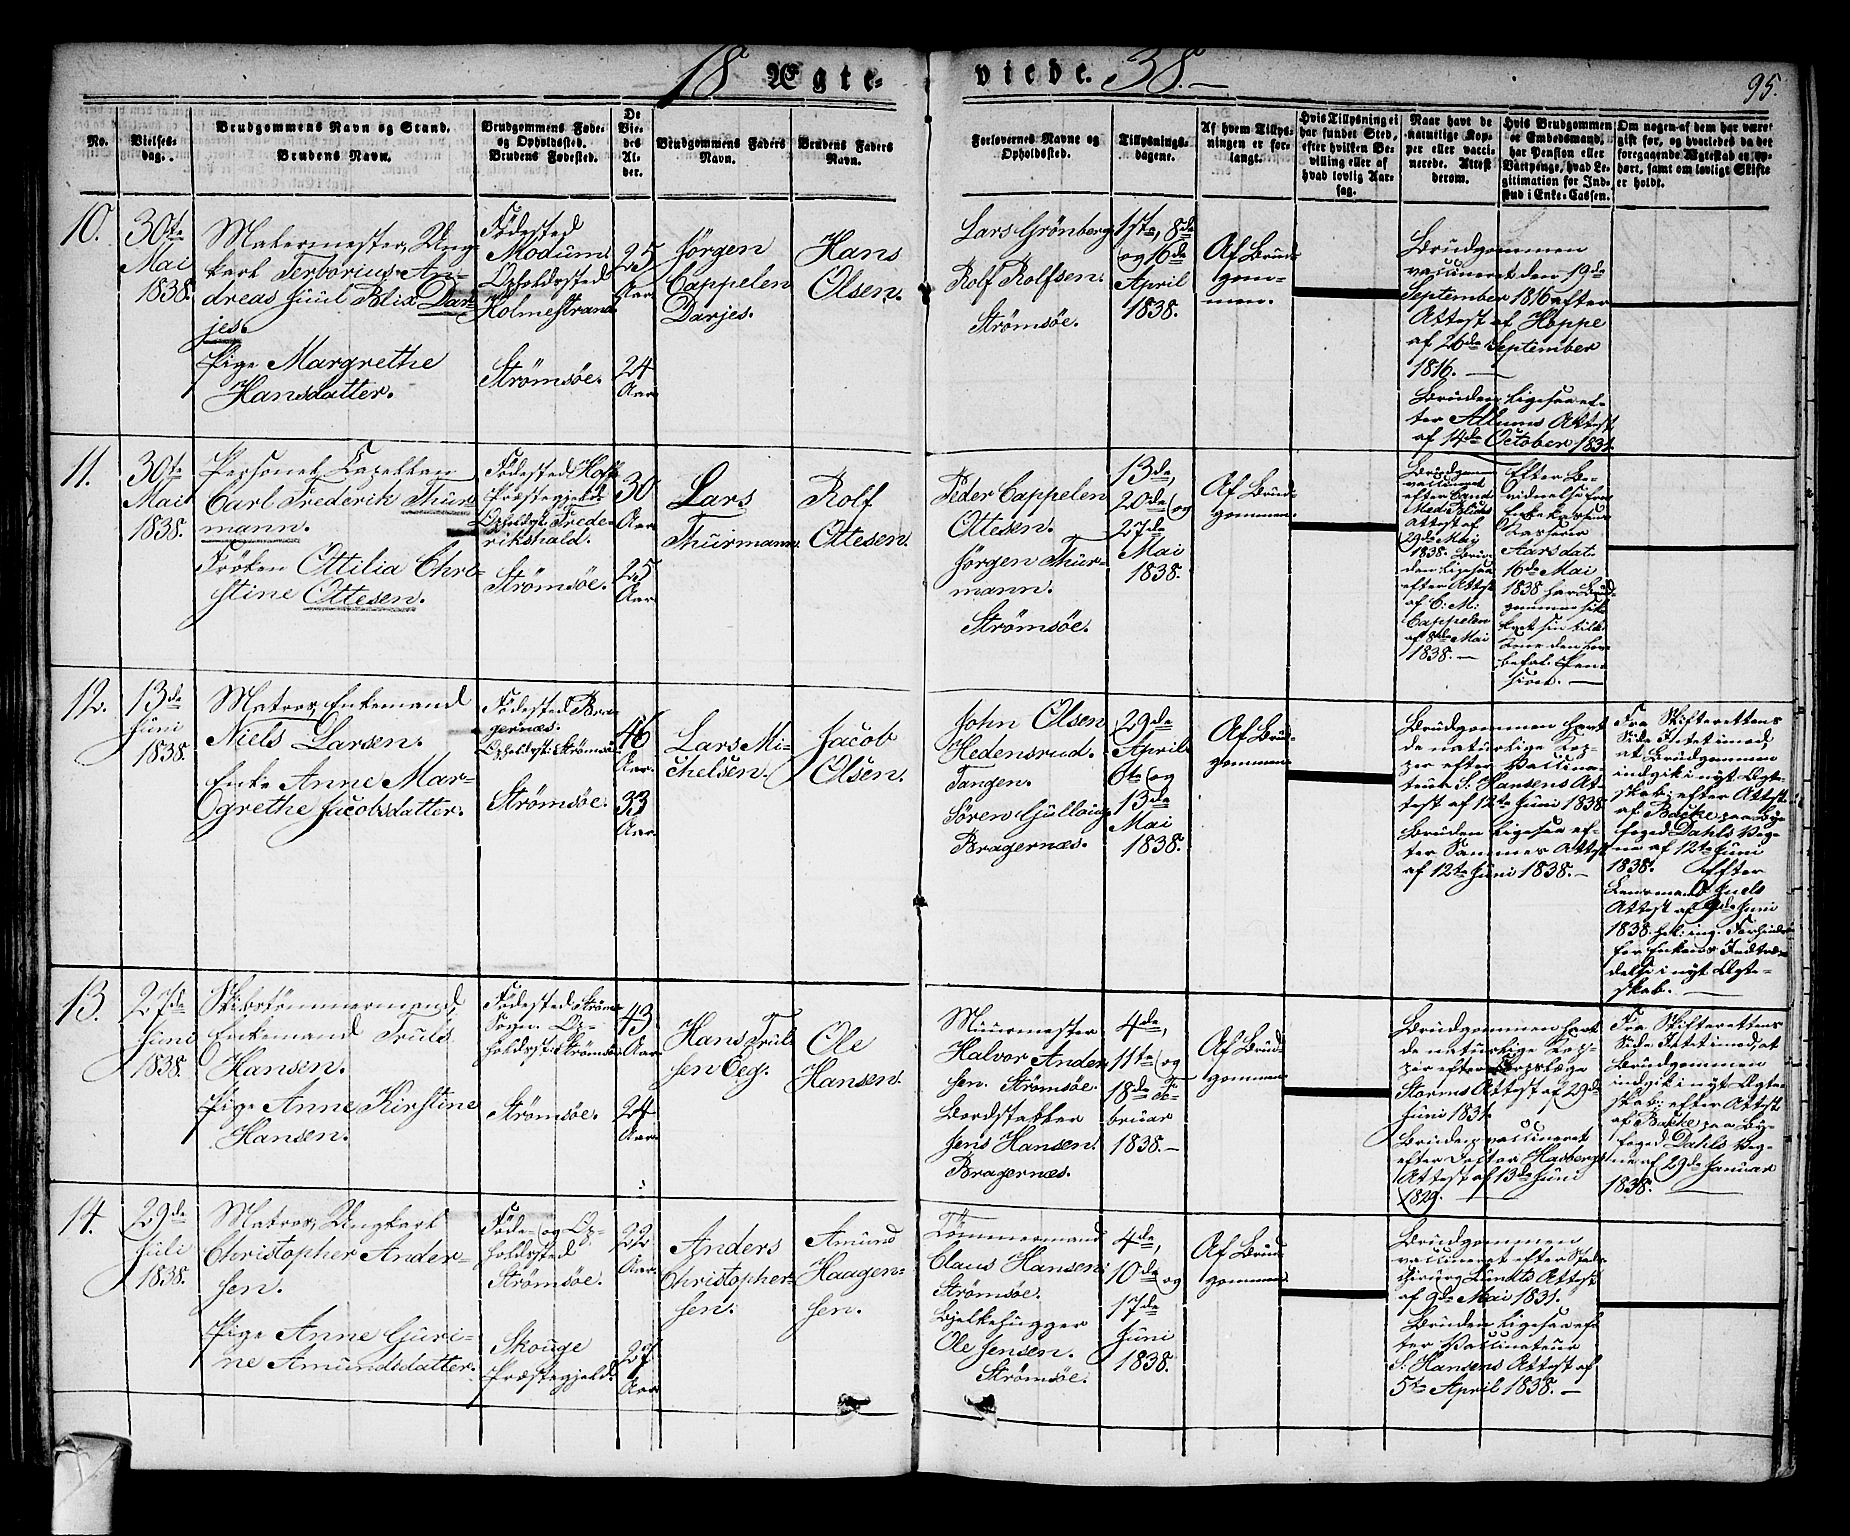 18 Ægte-
viede. 38.
95.
No.
Vielses-
dag.
Brudgommens Navn og Stand.
Brudens Navn.
Brudgommens Føde-
og Opholdssted.
Brudens Fødested.
De
Vie-
des
Al-
der.
Brudgommens Faders
Navn.
Brudens Faders
Navn.
Forlovernes Navne og
Opholdssted.
Tillysnings-
dagene.
Af hvem Tillys-
ningen er for-
langt.
Hvis Tillysning ei
har fundet Sted,
efter hvilken Be-
villing eller af
hvad lovlig Aar-
sag.
Naar have de
naturlige Kop-
per eller vacci-
nerede. Attest
derom.
Hvis Brudgommen
er Embedsmand,
har Pension eller
Vartpenge, hvad Le-
gitimation for Ind-
skud i Enke-Cassen.
Om nogen af dem har været
gift før, og hvorledes da det
foregaaende Ægteskab er op-
hørt, samt om lovligt Skifte
er holdt.
10.
30te
Mai
1838.
Malermester, Ung-
karl Terborius An-
dreas Juul Blix Dar-
jes.
Pige Margrethe
Hansdatter.
Fødested
Modum.
Opholdssted
Holmestrand.
Strømsöe.
25
Aar.
24
Aar.
Jørgen
Cappelen
Darjes.
Hans
Olsen.
Lars Grönberg
Rolf Rolfsen.
Strömsöe.
1ste, 8de
og 16de
April
1838.
Af Brud-
gom-
men.
Brudgommen
vaccineret den 19de
September 1816 efter
Attest af Hoppe
af 26de September
1816. —
Bruden ligesaa ef-
ter Allums Attest
af 14de October 1831.
11.
30te
Mai
1838.
Personel Capellan
Carl Frederik Thur-
mann.
Fröken Ottilia Chri-
stine Ottesen.
Fødested Hofs
Præstegjeld.
Opholdst. Frede-
rikshald.
Strömsöe.
30
Aar.
25
Aar.
Lars
Thurmann.
Rolf
Ottesen.
Peder Cappelen
Ottesen.
Jörgen Thur-
mann.
Strömsöe.
13de,
20de og
27de
Mai
1838.
Af Brud-
gommen.
Brudgom.
vaccineret
efter
Attest af
29de Mai
1838. Bru-
den ligesaa
efter Attest
af C: M:
Cappelen
af 8de Mai
1838. —
Efter Be-
vidnelse fra
Enkekassens
Kasserer
Aars dat.
16de Mai
1838 har Brud-
gommen sik-
kret sin tilk.
Kone den be-
befal. Pen-
sion. —
12.
13de
Juni
1838.
Matros, Enkemand
Niels Larsen.
Enke Anne Mar-
grethe Jacobsdatter.
Fødested Bra-
gernæs.
Opholdst. Strömsöe.
Strömsöe.
46
Aar.
33
Aar.
Lars Mi-
chelsen.
Jacob
Olsen.
John Olsen
Hedensrud.
Tangen.
Sören Gulloug
Bragernæs.
29de
April
6te og
13de
Mai
1838.
Af Brud-
gommen.
Brudgommen havt
de naturlige Kop-
per efter Vaccina-
teur S. Hansens At-
test af 12te Juni 1838.
Bruden ligesaa ef-
ter Sammes Attest
af 12te Juni 1838. —
Fra Skifterettens
Side Intet imod,
at Brudgommen
indgik i nyt Ægte-
skab; efter Attest
af Backe paa By-
foged Dahls Veg-
ne af 12te Juni
1838. Efter
Lensmand Juels
Attest af 9de Juni
1838 hel: ing. Forhinder
for Enkens Indtræ-
delse i nyt Ægte-
skab. —
13.
27de
Juni
1838.
Skibstömmermand,
Enkemand Truls
Hansen.
Pige Anne Kirstine
Hansen.
Fødested Ströms
Sogn. Op-
holdsst. Strömsöe.
Strömsöe.
43
Aar.
24
Aar.
Hans Trul-
sen Eeg.
Ole
Hansen.
Muurmester
Halvor Ander-
sen. Strömsöe.
Bordstabler
Jens Hansen.
Bragernæs.
4de,
11te og
18de Fe-
bruar
1838. —
Af Brud-
gommen.
Brudgommen havt
de naturlige Kop-
per efter Korpslæge
Storms Attest af 29de
Juni 1831.
Bruden vaccineret
efter Doctor Hasbergs
Attest af 13de Juni
1829. —
Fra Skifterettens
Side Intet imod, at
Brudgommen
indgik i nyt Ægte-
skab; efter Attest
af Backe paa By-
foged Dahls Veg-
ne af 29de Januar
1838. —
14.
29de
Juli
1838.
Matros, Ungkarl
Christopher Ander-
sen.
Pige Anne Guri-
ne Amundsdatter.
Føde- og Op-
holdssted
Strömsöe.
Skouge
Præstegjeld.
22
Aar.
27
Aar.
Anders
Christopher-
sen.
Amund
Haagen-
sen.
Tömmermand
Claus Hansen
Strömsöe.
Bjelkehugger
Ole Jensen.
Strömsöe.
4de,
10de og
17de
Juni
1838.
Af Brud-
gommen.
Brudgommen
vaccineret efter Stads-
chirurg Lundts Attest
af 9de Mai 1831.
Bruden ligesaa ef-
ter Vaccinateur
S. Hansens Attest af
5te April 1838. —